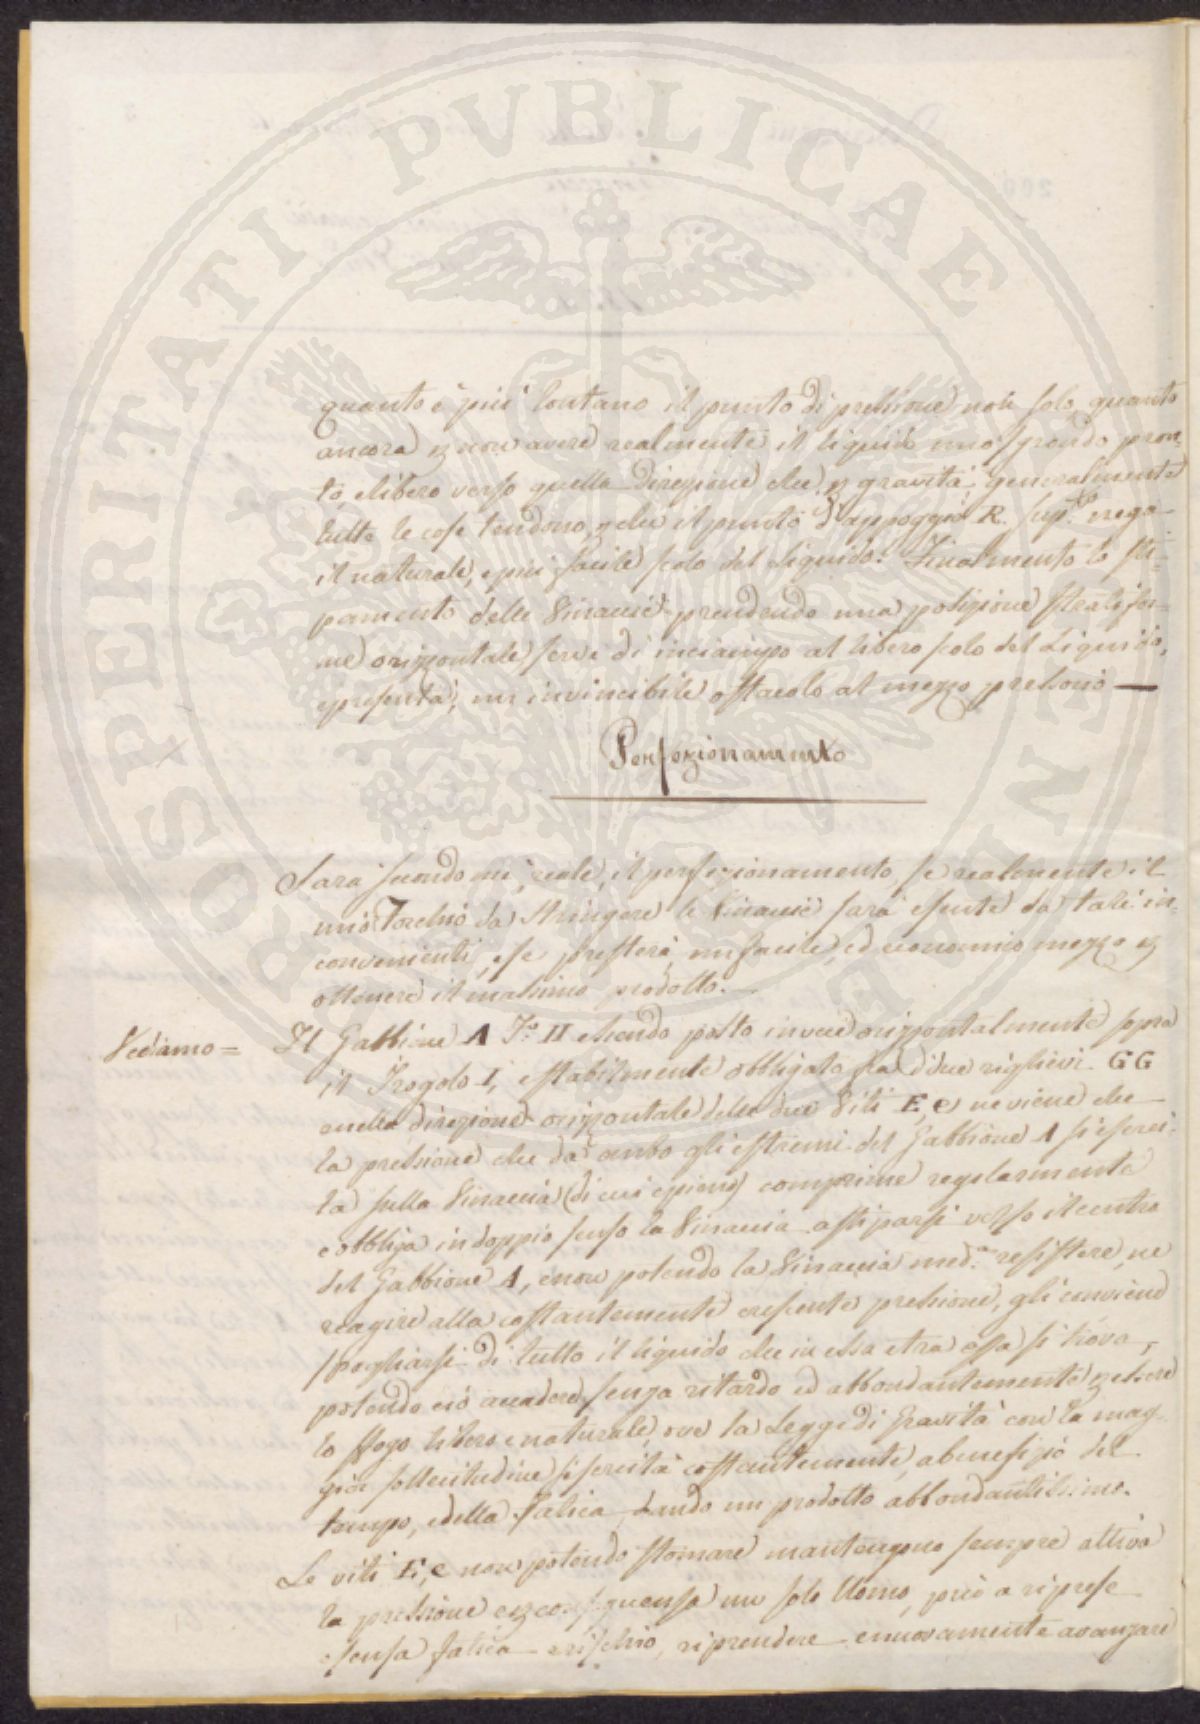 PROSPERITATI PVBLICAE
quanto è più lontano il punto di pressione, non solo, quanto
ancora p non avere realmente il liquido uno sgrondo pron-
to, e libero verso quella direzione che, p gravità, generalmente
tutte le cose tendono, e che il punto d'appoggio R. sup.to nega
il naturale, e più facile scolo del liquido. Finalmente lo sti-
pamento delle Vinaccie prendendo una posizione stratifor-
me orizzontale, serve di inciampo al libero scolo del Liquido,
e presenta, un invincibile ostacolo al mezzo pressorio —
Perfezionamento
Sarà secondo me, reale, il perfezionamento, se realmente il
mio Torchio da stringere le Vinaccie sarà esente da tali in-
convenienti, e se presterà, un facile, ed economico mezzo p
ottenere il massimo prodotto. —
Vediamo =
Il Gabbione A F.a II essendo posto invece orizzontalmente sopra
il Trogolo I, e stabilmente obbligato fra di due riglievi GG
nella direzione orizzontale delle due Viti E, e, ne viene che
la pressione che da ambo gli estremi del Gabbione A si eserci-
ta sulla Vinaccia (di cui è pieno) comprime regolarmente
e obbliga in doppio senso la Vinaccia a stiparsi verso il centro
del Gabbione A, e non potendo la Vinaccia med.ma resistere, ne
reagire alla costantemente crescente pressione, gli conviene
spogliarsi di tutto il liquido che in essa e tra essa si trova,
potendo ciò accadere senza ritardo ed abbondantemente p essere
lo sfogo libero e naturale, ove la Legge di Gravità con la mag-
gior sollecitudine si esercita costantemente, a benefizio del
tempo, e della fatica, dando un prodotto abbondantissimo.
Le viti E, e non potendo stornare mantengono sempre attiva
la pressione e p conseguensa un solo Uomo, può a riprese
e sensa fatica e rischio, riprendere e nuovamente avanzare